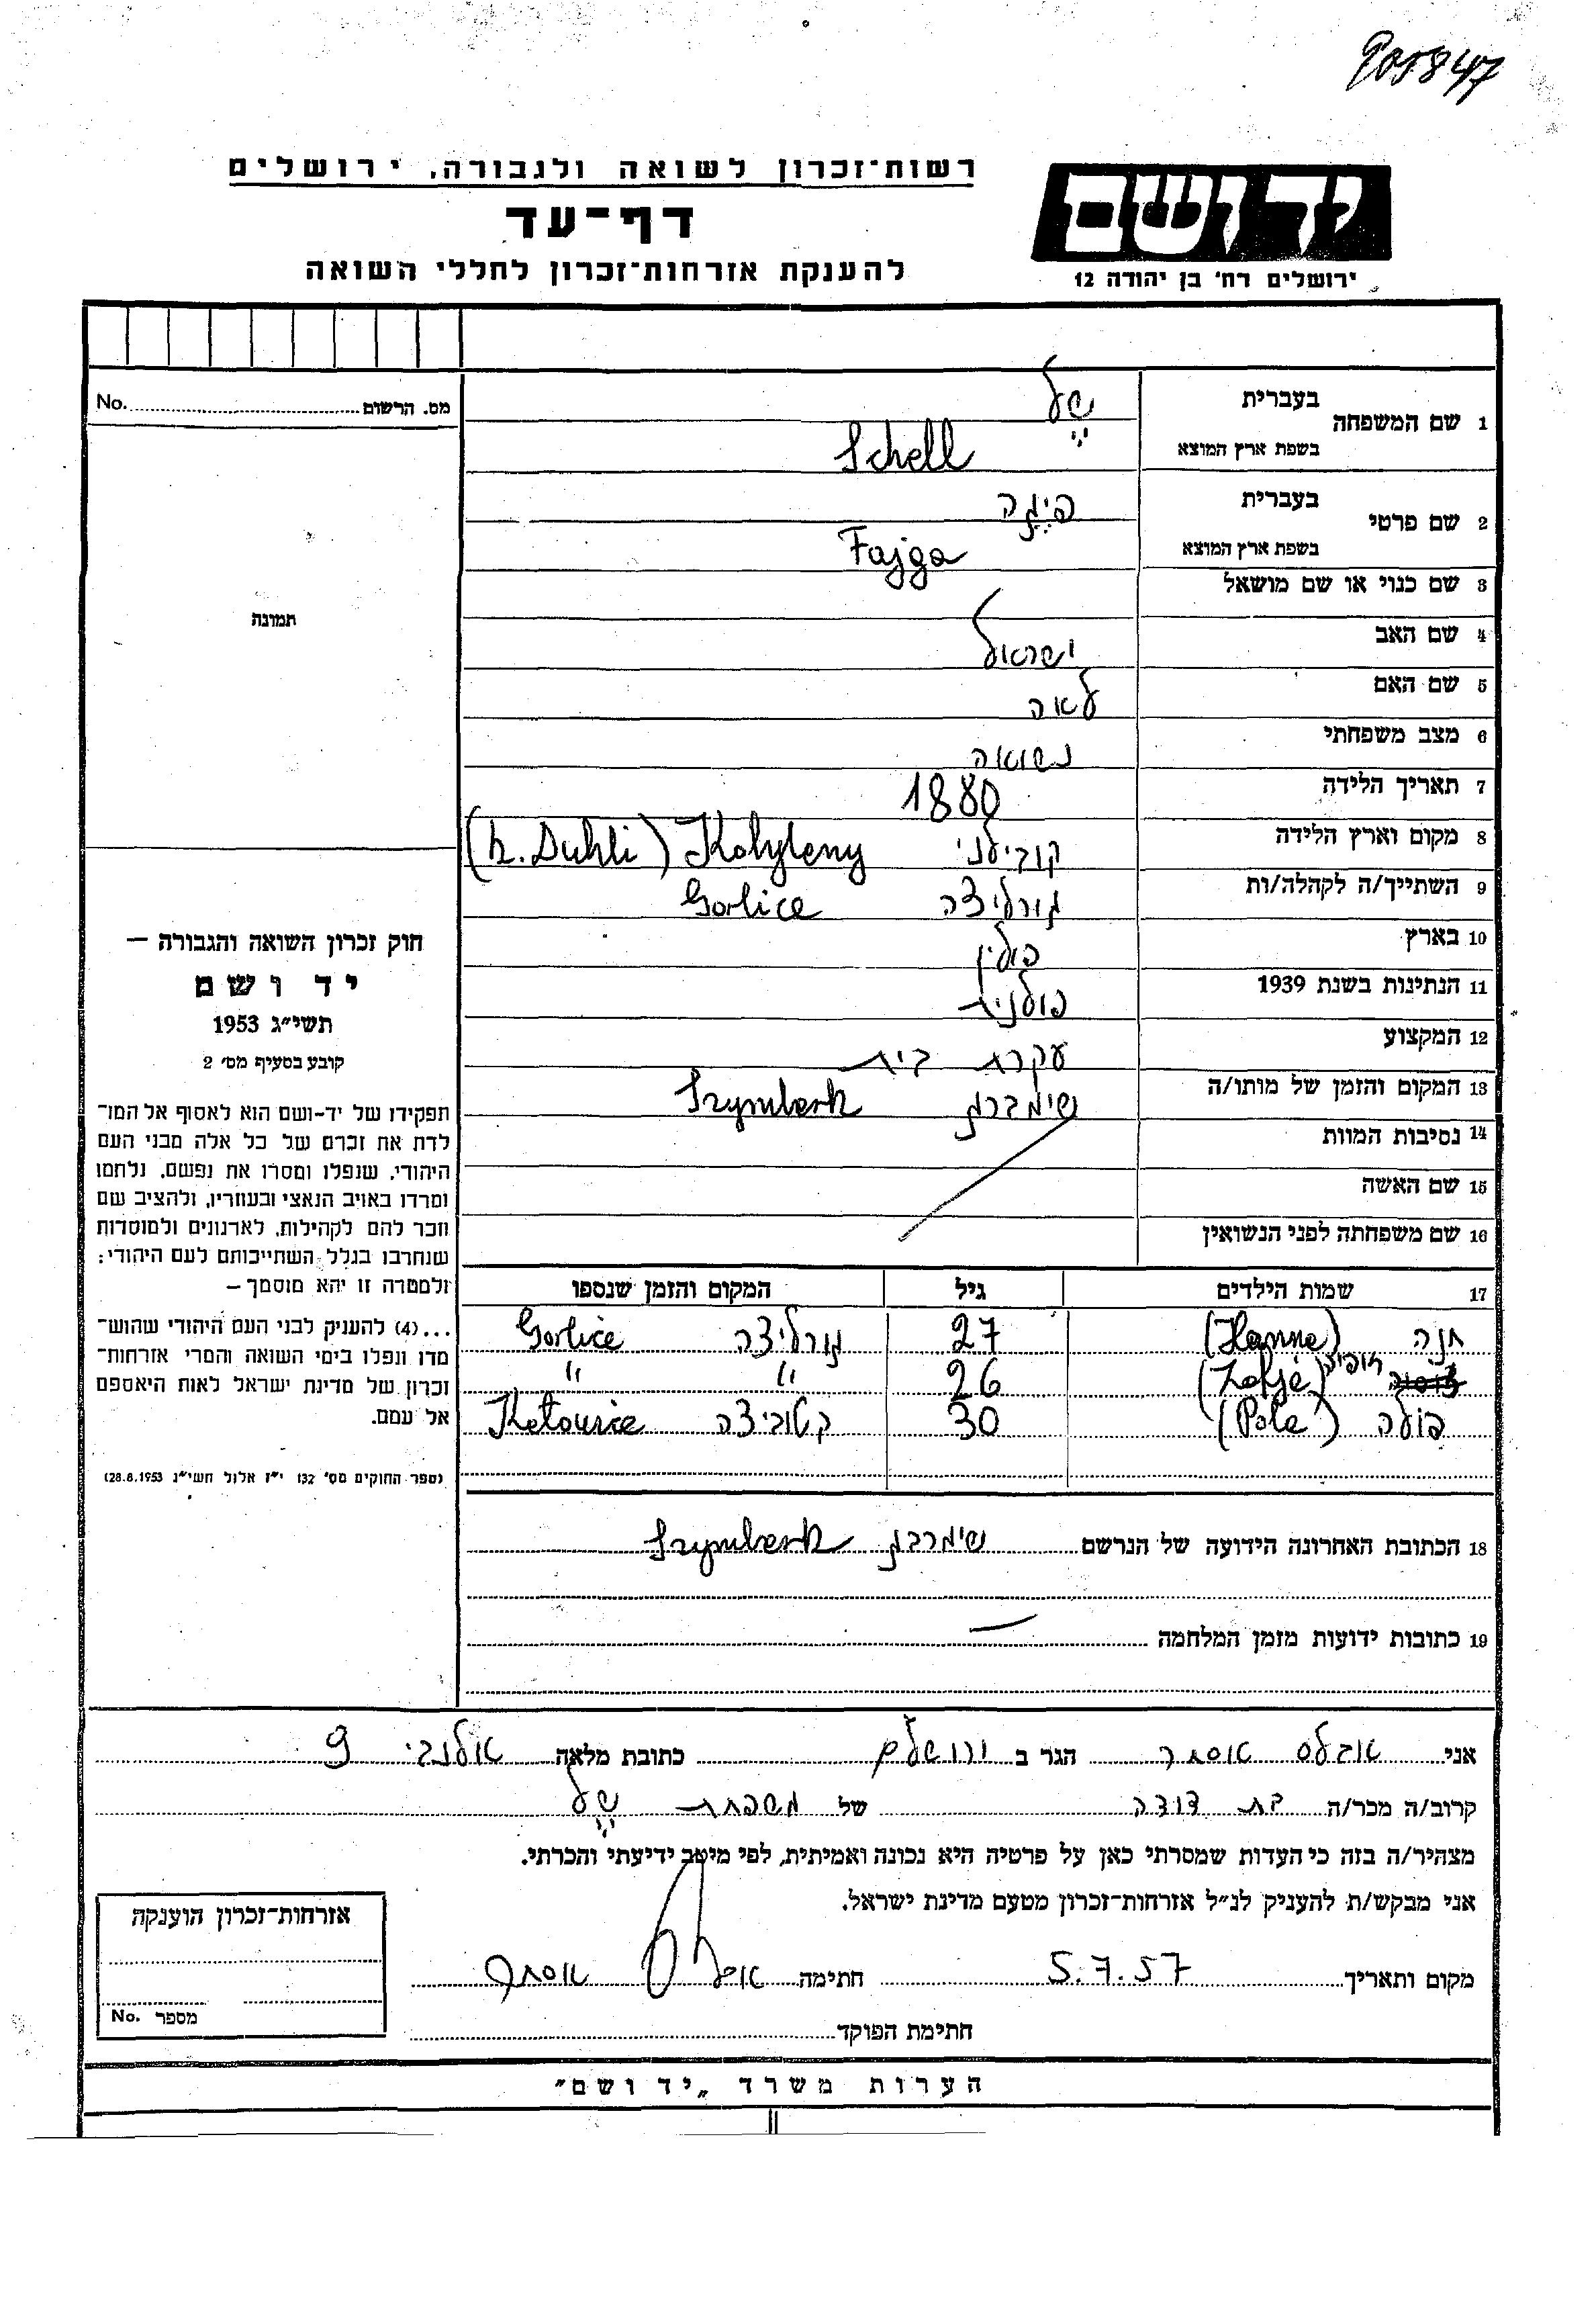 905847
רשות־זכרון לשואה ולגבורה, ירושלים
דף־עד
להענקת אזרחות־זכרון לחללי השואה
יד ושם
ירושלים רח' בן יהודה 12
No. מס. הרשום
תמונה
1 שם המשפחה
בעברית שֶל
בשפת ארץ המוצא Schell
2 שם פרטי
בעברית פיגה
בשפת ארץ המוצא Fajga
3 שם כנוי או שם מושאל
4 שם האב ישראל
5 שם האם לאה
6 מצב משפחתי נשואה
7 תאריך הלידה 1880
8 מקום וארץ הלידה קובילני Kobyleny (k. Dukli)
9 השתייך/ה לקהלה/ות גורליצה Gorlice
10 בארץ פולין
11 הנתינות בשנת 1939 פולנית
12 המקצוע עקרת בית
13 המקום והזמן של מותו/ה שימברק Szymbark
14 נסיבות המוות
15 שם האשה
16 שם משפחתה לפני הנשואין
17 שמות הילדים גיל המקום והזמן שנספו
חנה (Hanna) 27 גורליצה Gorlice
זופיה (Zofja) 26 " "
פולה (Pola) 30 קטוביצה Katowice
18 הכתובת האחרונה הידועה של הנרשם שימברק Szymbark
19 כתובות ידועות מזמן המלחמה —
חוק זכרון השואה והגבורה —
יד ושם
תשי״ג 1953
קובע בסעיף מס׳ 2
תפקידו של יד-ושם הוא לאסוף אל המו־
לדת את זכרם של כל אלה מבני העם
היהודי, שנפלו ומסרו את נפשם, נלחמו
ומרדו באויב הנאצי ובעוזריו, ולהציב שם
וזכר להם לקהילות, לארגונים ולמוסדות
שנחרבו בגלל השתייכותם לעם היהודי;
ולמטרה זו יהא מוסמך —
...(4) להעניק לבני העם היהודי שהוש־
מדו ונפלו בימי השואה והמרי אזרחות־
זכרון של מדינת ישראל לאות היאספם
אל עמם.
(ספר החוקים מס׳ 132 י״ז אלול תשי״ג 28.8.1953)
אני אבלס אסתר הגר ב ירושלם כתובת מלאה אלנבי 9
קרוב/ה מכר/ה בת דודה של משפחת שֶל
מצהיר/ה בזה כי העדות שמסרתי כאן על פרטיה היא נכונה ואמיתית, לפי מיטב ידיעתי והכרתי.
אני מבקש/ת להעניק לנ״ל אזרחות־זכרון מטעם מדינת ישראל.
מקום ותאריך 5.7.57 חתימה אבלס אסתר
חתימת הפוקד
אזרחות־זכרון הוענקה
No. מספר
הערות משרד „יד ושם״